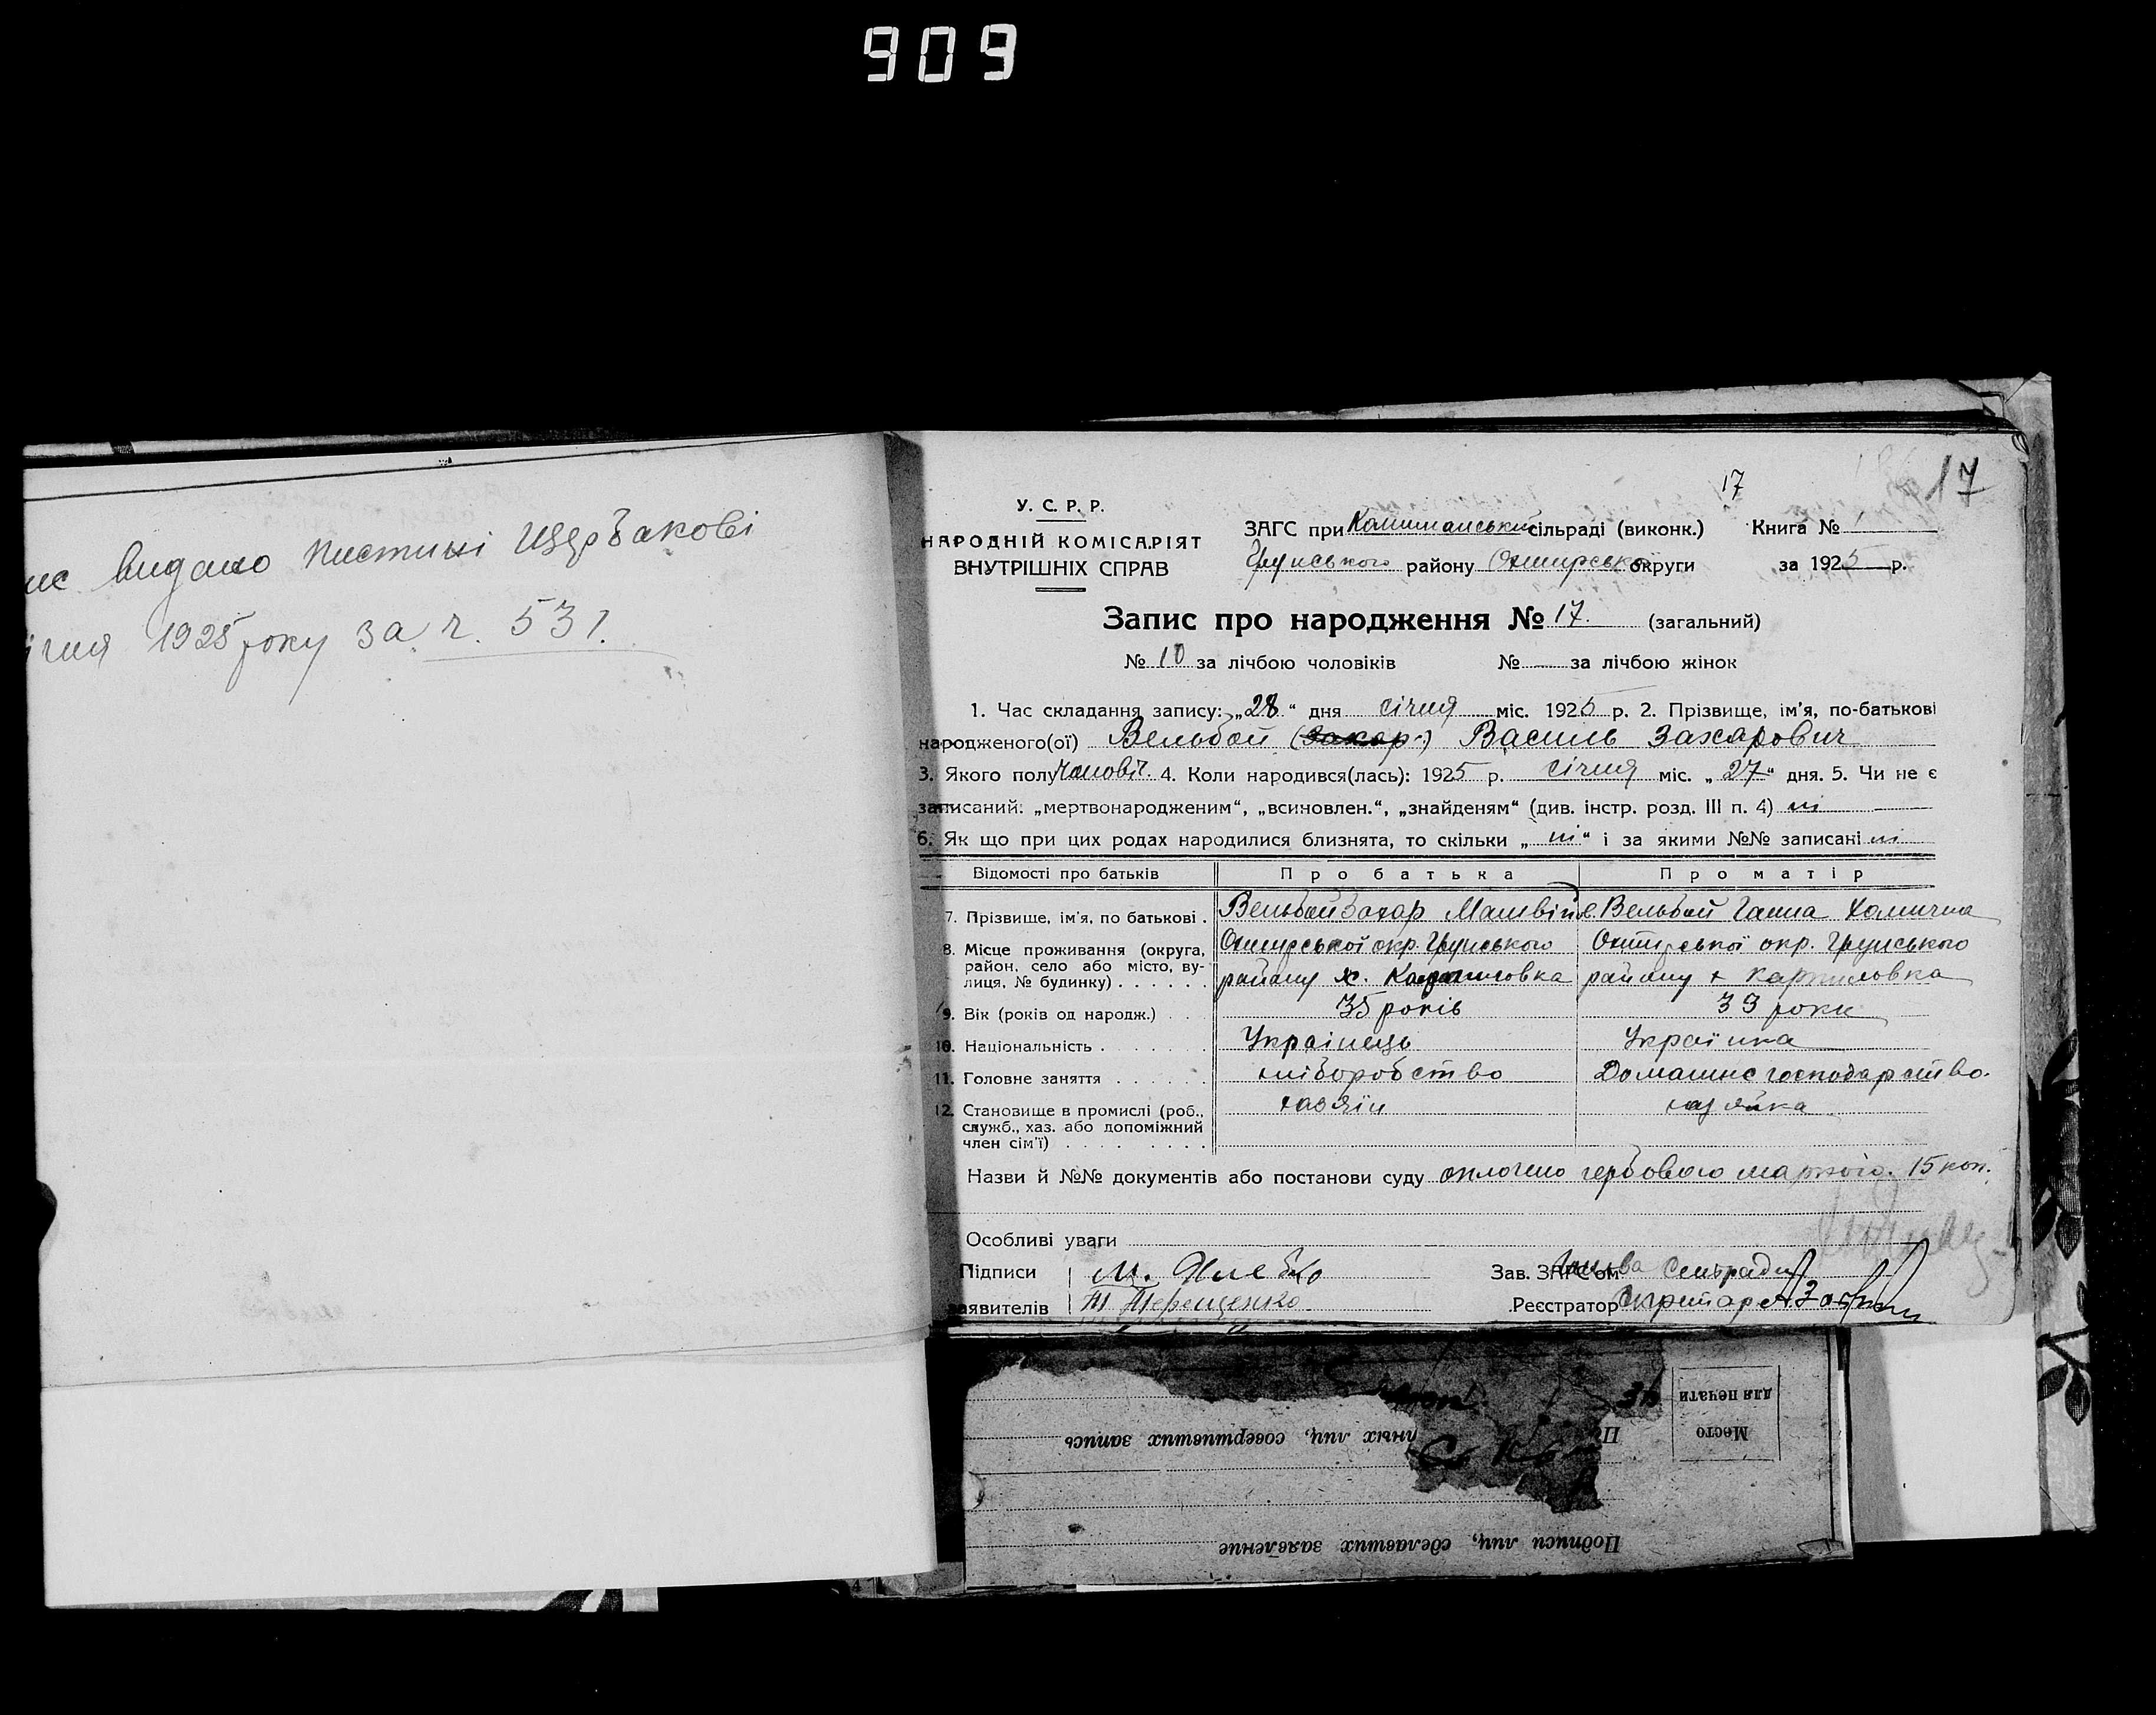 909
видано Пистині Щербакові
1925 року за ч. 531.
17
17
У. С. Р. Р.
НАРОДНІЙ КОМІСАРІЯТ
ВНУТРІШНІХ СПРАВ
ЗАГС при сільраді (виконк.) Книга № 1
Грунського району Охтирської округи за 1925 р.
Запис про народження № 17. (загальний)
№ 10 за лічбою чоловіків № — за лічбою жінок
1. Час складання запису: „28“ дня січня міс. 1925 р. 2. Прізвище, ім'я, по-батькові
народженого(ої) Вельбой (Захар) Василь Захарович
3. Якого полу Чоловіч. 4. Коли народився(лась): 1925 р. січня міс. „27“ дня. 5. Чи не є
записаний: „мертвонародженим“, „всиновлен.“, „знайденям“ (див. інстр. розд. III п. 4) ні
6. Як що при цих родах народилися близнята, то скільки „ні“ і за якими №№ записані ні
Відомості про батьків Про батька Про матір
7. Прізвище, ім'я, по батькові . Вельбой Захар Матвійе. Вельбой Ганна Хомична
8. Місце проживання (округа, район, село або місто, вулиця, № будинку) . . . . . . Охтирської окр. Грунського району х. Карпиловка Охтирської окр. Грунського району х Карпиловка
9. Вік (років од народж.) . . 35 років 39 роки
10. Національність . . . . . . Українець Українка
11. Головне заняття . . . . . . хліборобство Домашнє господарство.
12. Становище в промислі (роб., служб., хаз. або допоміжний член сім'ї) . . . . . . . . хазяїн хазяйка
Назви й №№ документів або постанови суду оплочено гербового маркою. 15 коп.
Особливі уваги
Підписи М. Хлебко Зав. ЗАГС'ом Голова Сельради
заявителів Т Терещенко Реєстратор Секретар
Место
для печати
лных лиц, совершивших запись
Подписи лиц, сделавших заявление